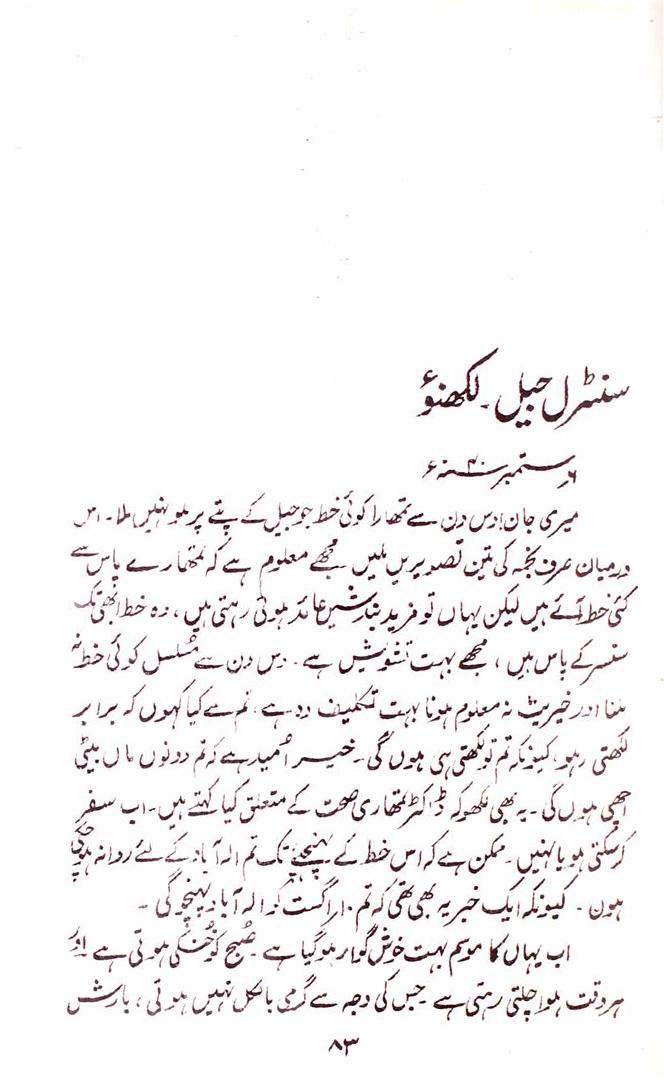 سنٹرل جیل۔ لکھنؤ
۶ر ستمبر ۴۰ سنہ ء
میری جان! دس دن سے تمھارا کوئی خط جو جیل کے پتے پر ہو نہیں ملا۔ اس
درمیان صرف نجمہ کی تین تصویریں ملیں مجھے معلوم ہے کہ تمھارے پاس سے
کئی خط آئے ہیں لیکن یہاں تو مزید بندشیں عائد ہوتی رہتی ہیں، وہ خط ابھی تک
سنسر کے پاس ہیں، مجھے بہت تشویش ہے۔ دس دن سے مسلسل کوئی خط نہ
ملنا اور خیریت نہ معلوم ہونا بہت تکلیف دہ ہے، تم سے کیا کہوں کہ برابر
لکھتی رہو، کیونکہ تم تو لکھتی ہی ہوں گی۔ خیر اُمید ہے کہ تم دونوں ماں بیٹی
اچھی ہوں گی۔ یہ بھی لکھو کہ ڈاکٹر تمھاری صحت کے متعلق کیا کہتے ہیں۔ اب سفر
کر سکتی ہو یا نہیں۔ ممکن ہے کہ اس خط کے پہنچنے تک تم الہ آباد کے لئے روانہ ہو چکی
ہون۔ کیونکہ ایک خبر یہ بھی تھی کہ تم ۱۰ر اگست کو الہ آباد پہنچو گی۔
اب یہاں کا موسم بہت خوش گوار ہو گیا ہے صبح کو خنکی ہوتی ہے اور
ہر وقت ہوا چلتی رہتی ہے جس کی وجہ سے گرمی بالکل نہیں ہوتی، بارش
۸۳